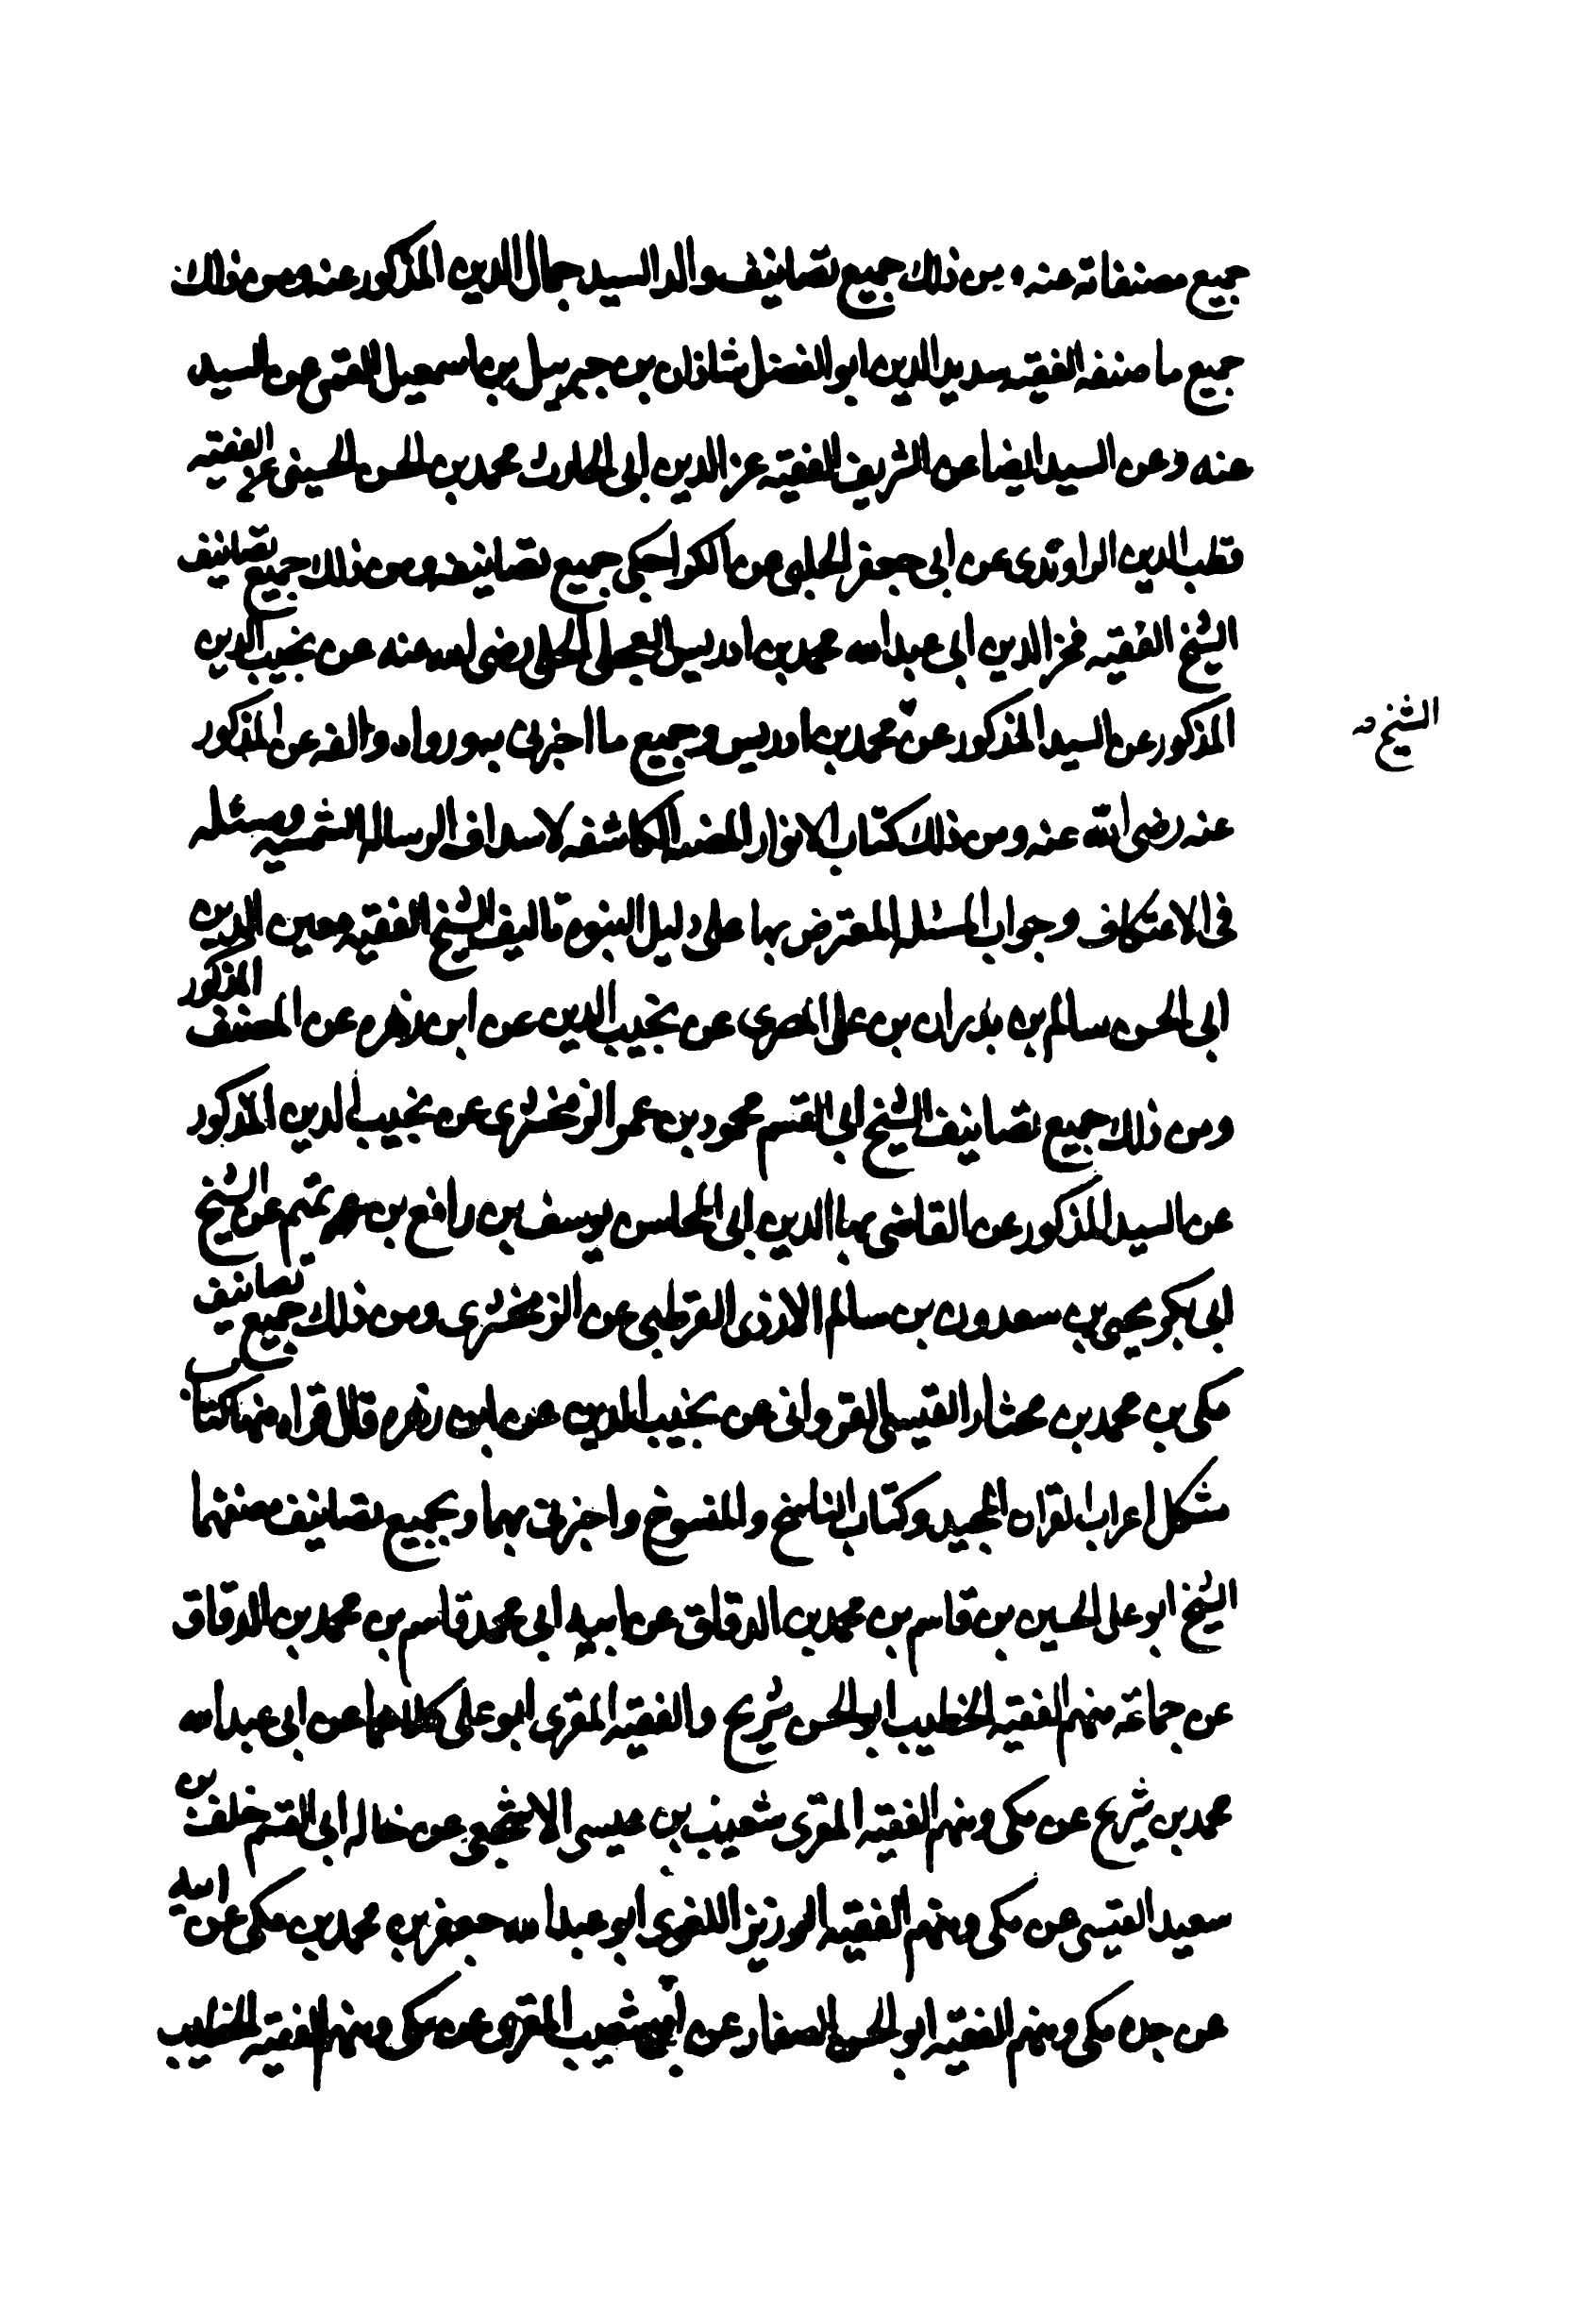 جميع مصنفاته عنه ومن ذلك جميع تصانيف والد السيد جمال الدين المذكور عنه ومن ذلك
جميع ما صنفه الفقيه سديد الدين ابو الفضل شاذان بن جبرييل بن اسمعيل القمى عن السيد
عنه وعن السيد ايضا عن الشريف الفقيه عز الدين ابى الحارث محمد بن الحسن الحسينى عن الفقيه
قطب الدين الراوندى عن ابى جعفر الحلبى عن الكراجكى جميع تصانيفه ومن ذلك جميع تصانيف
الشيخ الفقيه فخر الدين ابى عبد الله محمد بن ادريس العجلى الحلى رضى الله عنه عن نجيب الدين
المذكور عن السيد المذكور عن محمد بن ادريس وجميع ما اجزنى به ورواه والفه عن المذكور
الشيخ
عنه رضى الله عنه ومن ذلك كتاب الانوار المضيه الكاشفه لاسداف الرساله الشمسيه ومسئله
فى الاعتكاف وجواب المسئله المعترض بها على دليل النبوه تاليف الشيخ الفقيه معين الدين
ابى الحسن سالم بن بدران بن على المصرى عن نجيب الدين عن ابن زهره عن المصنف المذكور
ومن ذلك جميع تصانيف الشيخ ابى القسم محمود بن عمر الزمخشرى عن نجيب الدين المذكور
عن السيد المذكور عن القاضى بها الدين ابى المحاسن يوسف بن رافع بن تميم عن الشيخ
ابى بكر يحيى بن سعدون بن سالم الازدى القرطبى عن الزمخشرى ومن ذلك جميع تصانيف
مكى بن محمد بن مختار القيسى القروانى عن نجيب الدين عن ابن زهره قال قراه منها كتاب
مشكل اعراب القران المجيد وكتاب الناسخ والمنسوخ واجزنى بهما وبجميع تصانيف مصنفهما
الشيخ ابو على الحسين بن قاسم بن محمد بن الدقاق عن ابيه ابى محمد قاسم بن محمد بن الدقاق
عن جماعة منهم الفقيه الخطيب ابو الحسن شريح والفقيه المقرى ابو على كلاهما عن ابى عبد الله
محمد بن شريح عن مكى ومنهم الفقيه المقرى شعيب بن عيسى الاشجعى عن خاله ابى القسم خلف بن
سعيد القيسى عن مكى ومنهم الفقيه الوزير اللغوى ابو عبد الله جعفر بن محمد بن مكى عن ابيه
عن جده مكى ومنهم الفقيه ابو الحسن الصفار عن شعيب المقرى عن مكى ومنهم الفقيه الخطيب